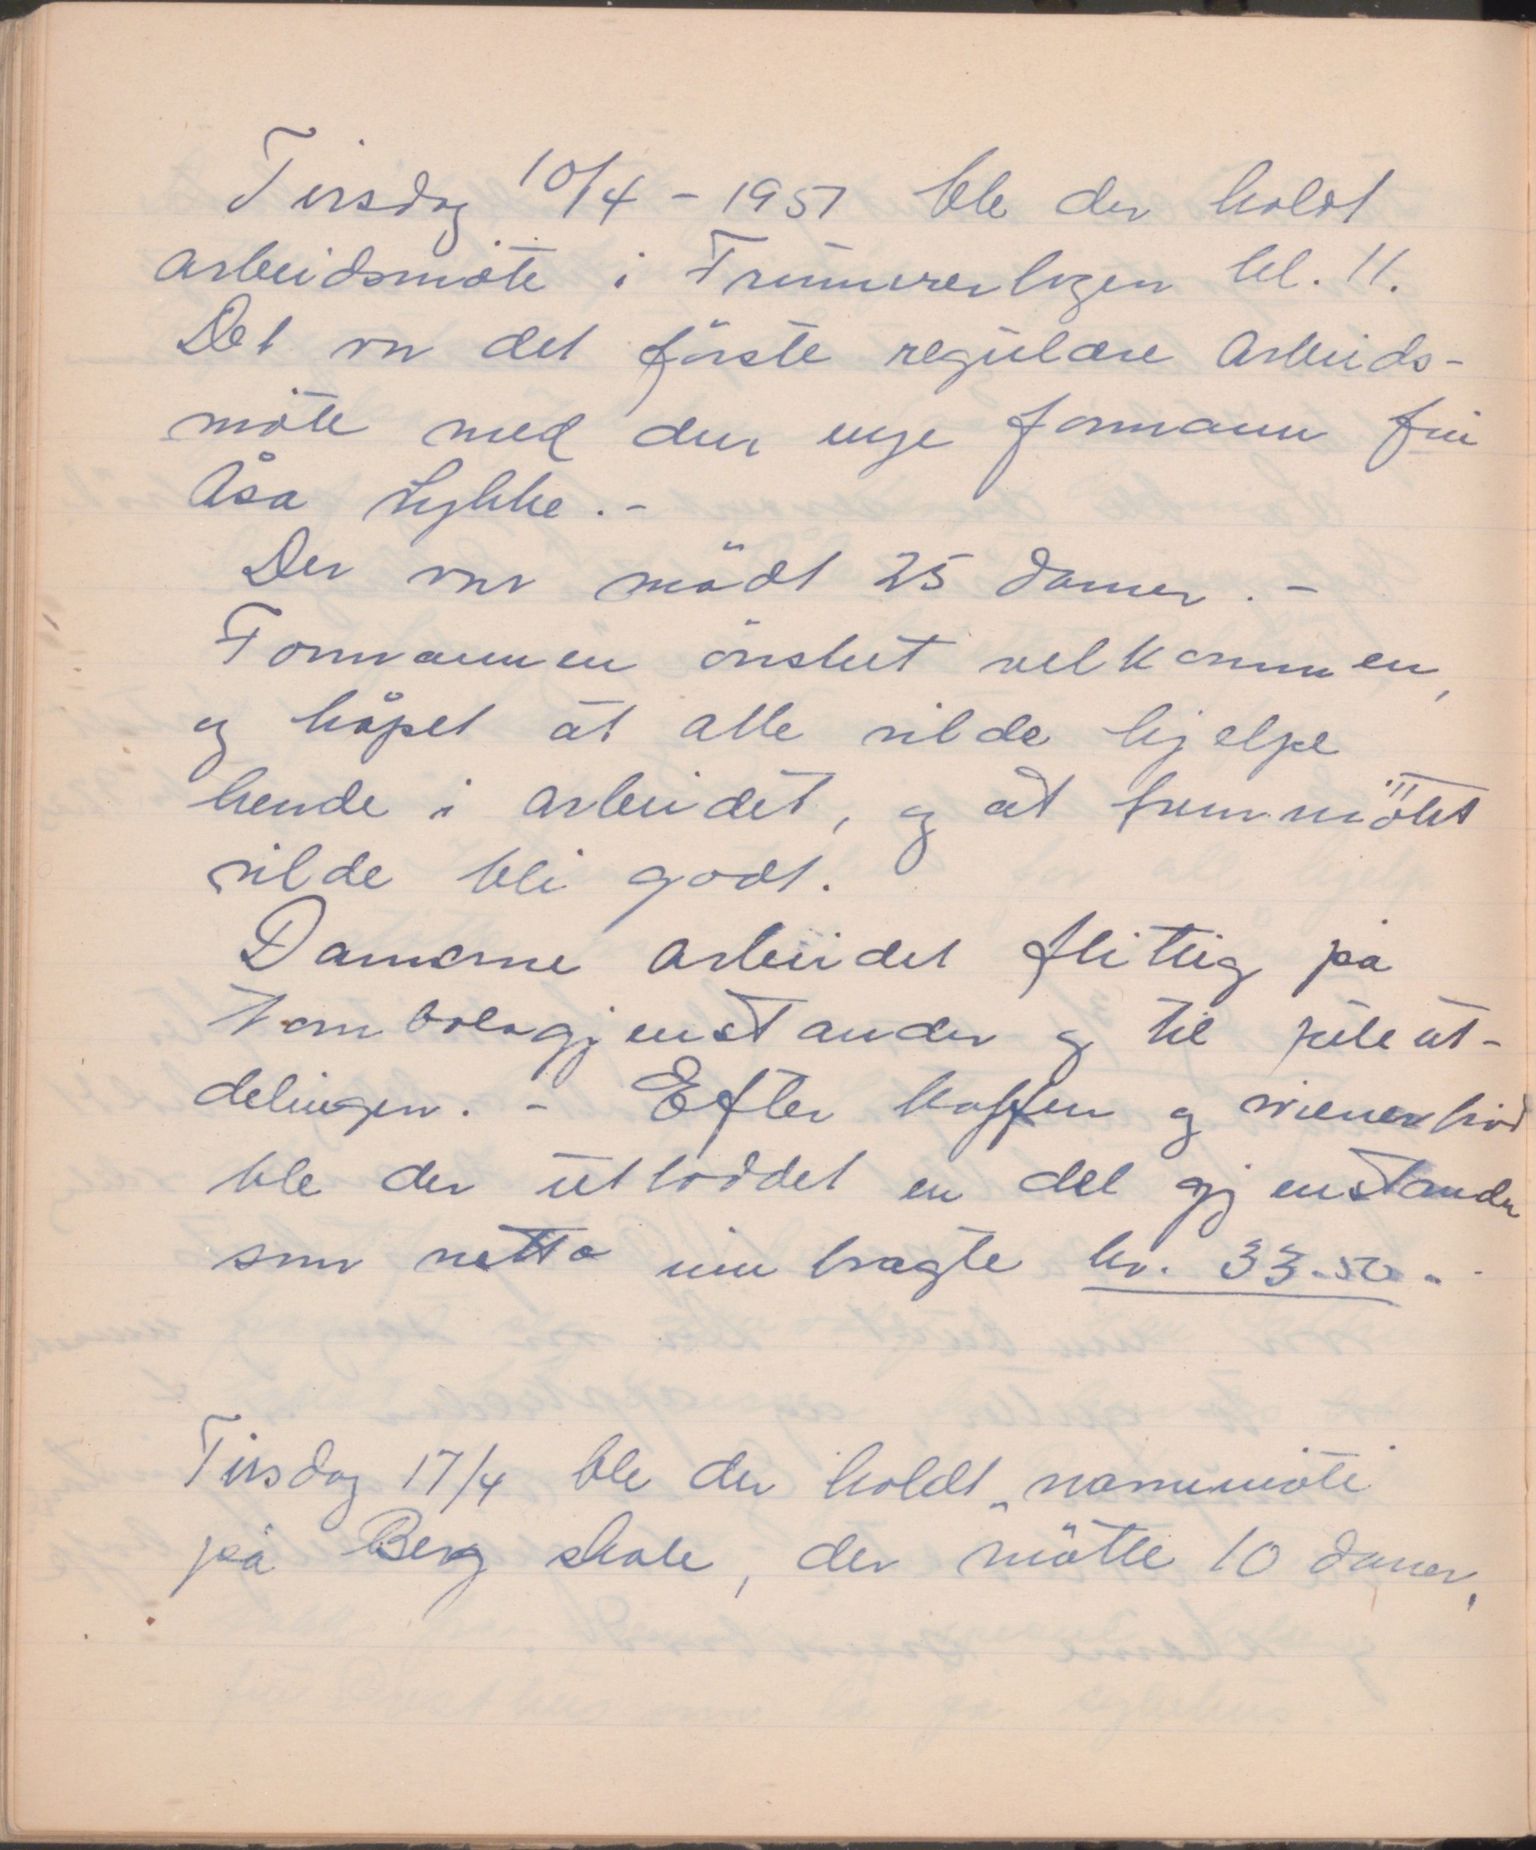 Tirsdag 10/4 - 1951 ble der holdt
arbeidsmöte i Frimurerlogen kl. 11.
Det var det förste regulære arbeids-
möte med den nye formann fru
Åsa Lykke. -
Der var mödt 25 damer. -
Formannen önsket velkommen,
og håpet at alle vilde hjelpe
hende i arbeidet, og at fremmötet
vilde bli godt.
Damerne arbeidet flittig på
tombolagjenstander og til juleut-
delingen. - Efter kaffen og wienerbröd
ble der utloddet en del gjenstander
som netto innbragte kr. 33.50.
Tirsdag 17/4 ble der holdt navnemöte
på Berg skole, der mötte 10 damer,